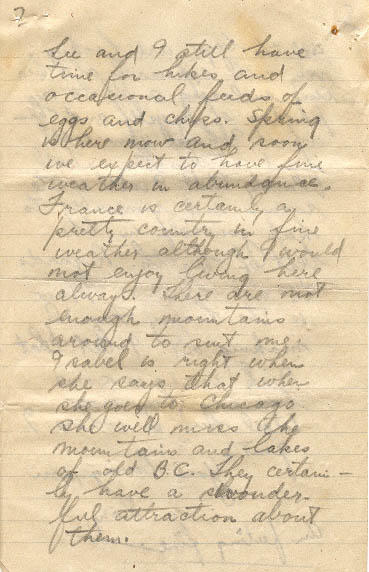 2
Lee and I still have
time for hikes and
occasional feeds of
eggs and chips. Spring
is here now and soon
we expect to have fine
weather in abundance.
France is certainly a
pretty country in fine
weather although I would
not enjoy living here
always. There are not
enough mountains
around to suit me.
Isabel is right when
she says that when
she goes to Chicago
she will miss the
mountains and lakes
of old B.C. They certain-
ly have a wonder-
ful attraction about
them.